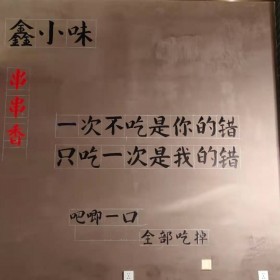 鑫小味
串串香
一次不吃是你的错
只吃一次是我的错
吧唧一口
全部吃掉